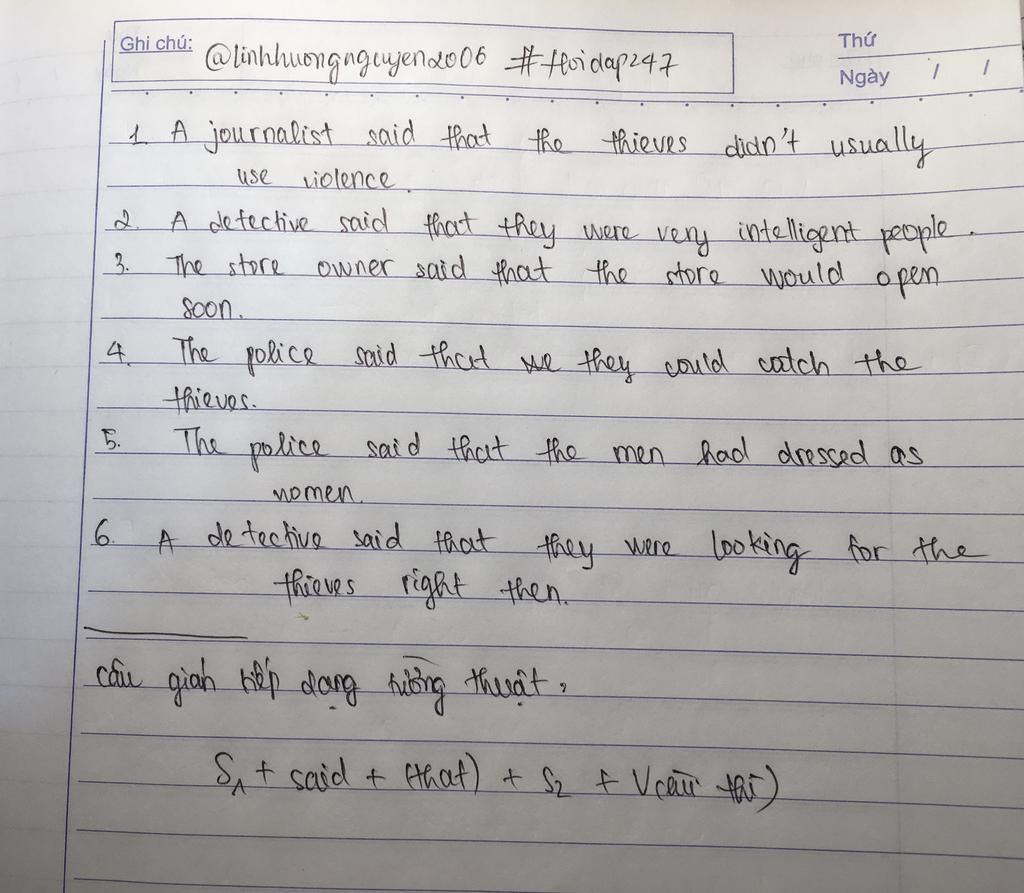 Ghi chú: @linhhuongnguyen2006 #hoidap247
Thứ
Ngày / /
1. A journalist said that the thieves didn't usually
use violence.
2. A detective said that they were very intelligent people.
3. The store owner said that the store would open
soon.
4. The police said that they could catch the
thieves.
5. The police said that the men had dressed as
women.
6. A detective said that they were looking for the
thieves right then.
câu gián tiếp dạng tường thuật,
S1 + said + (that) + S2 + V(lùi thì)